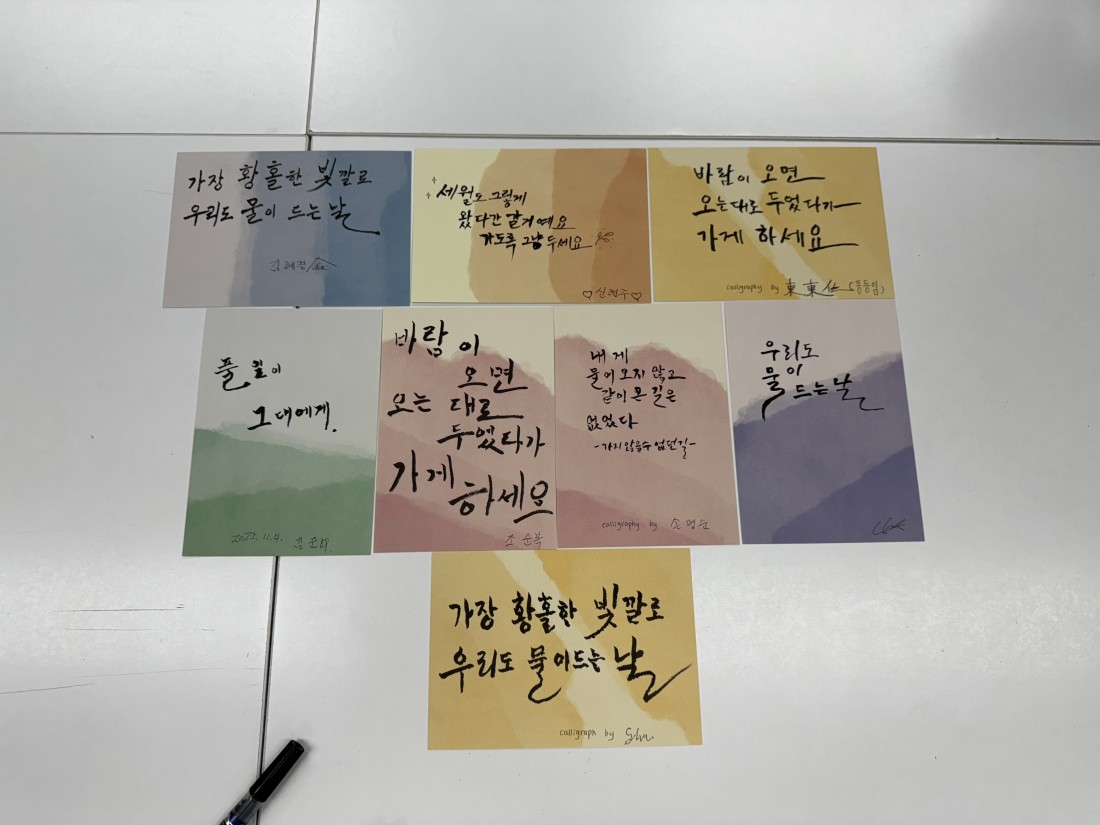 가장 황홀한 빛깔로
우리도 물이 드는 날
김혜경
세월도 그렇게
왔다간 갈거예요
가도록 그냥 두세요
♡신현주♡
바람이 오면
오는대로 두었다가
가게 하세요
calligraphy by 東東任 (동동임)
풀잎이
그대에게.
2025. 11. 4.
바람이
오면
오는 대로
두었다가
가게
하세요
조순복
내게
물어오지 않고
같이 온 길은
없었다
-가지않을수 없던길-
calligraphy by 손명순
우리도
물이
드는 날
가장 황홀한 빛깔로
우리도 물이드는 날
calligraph by